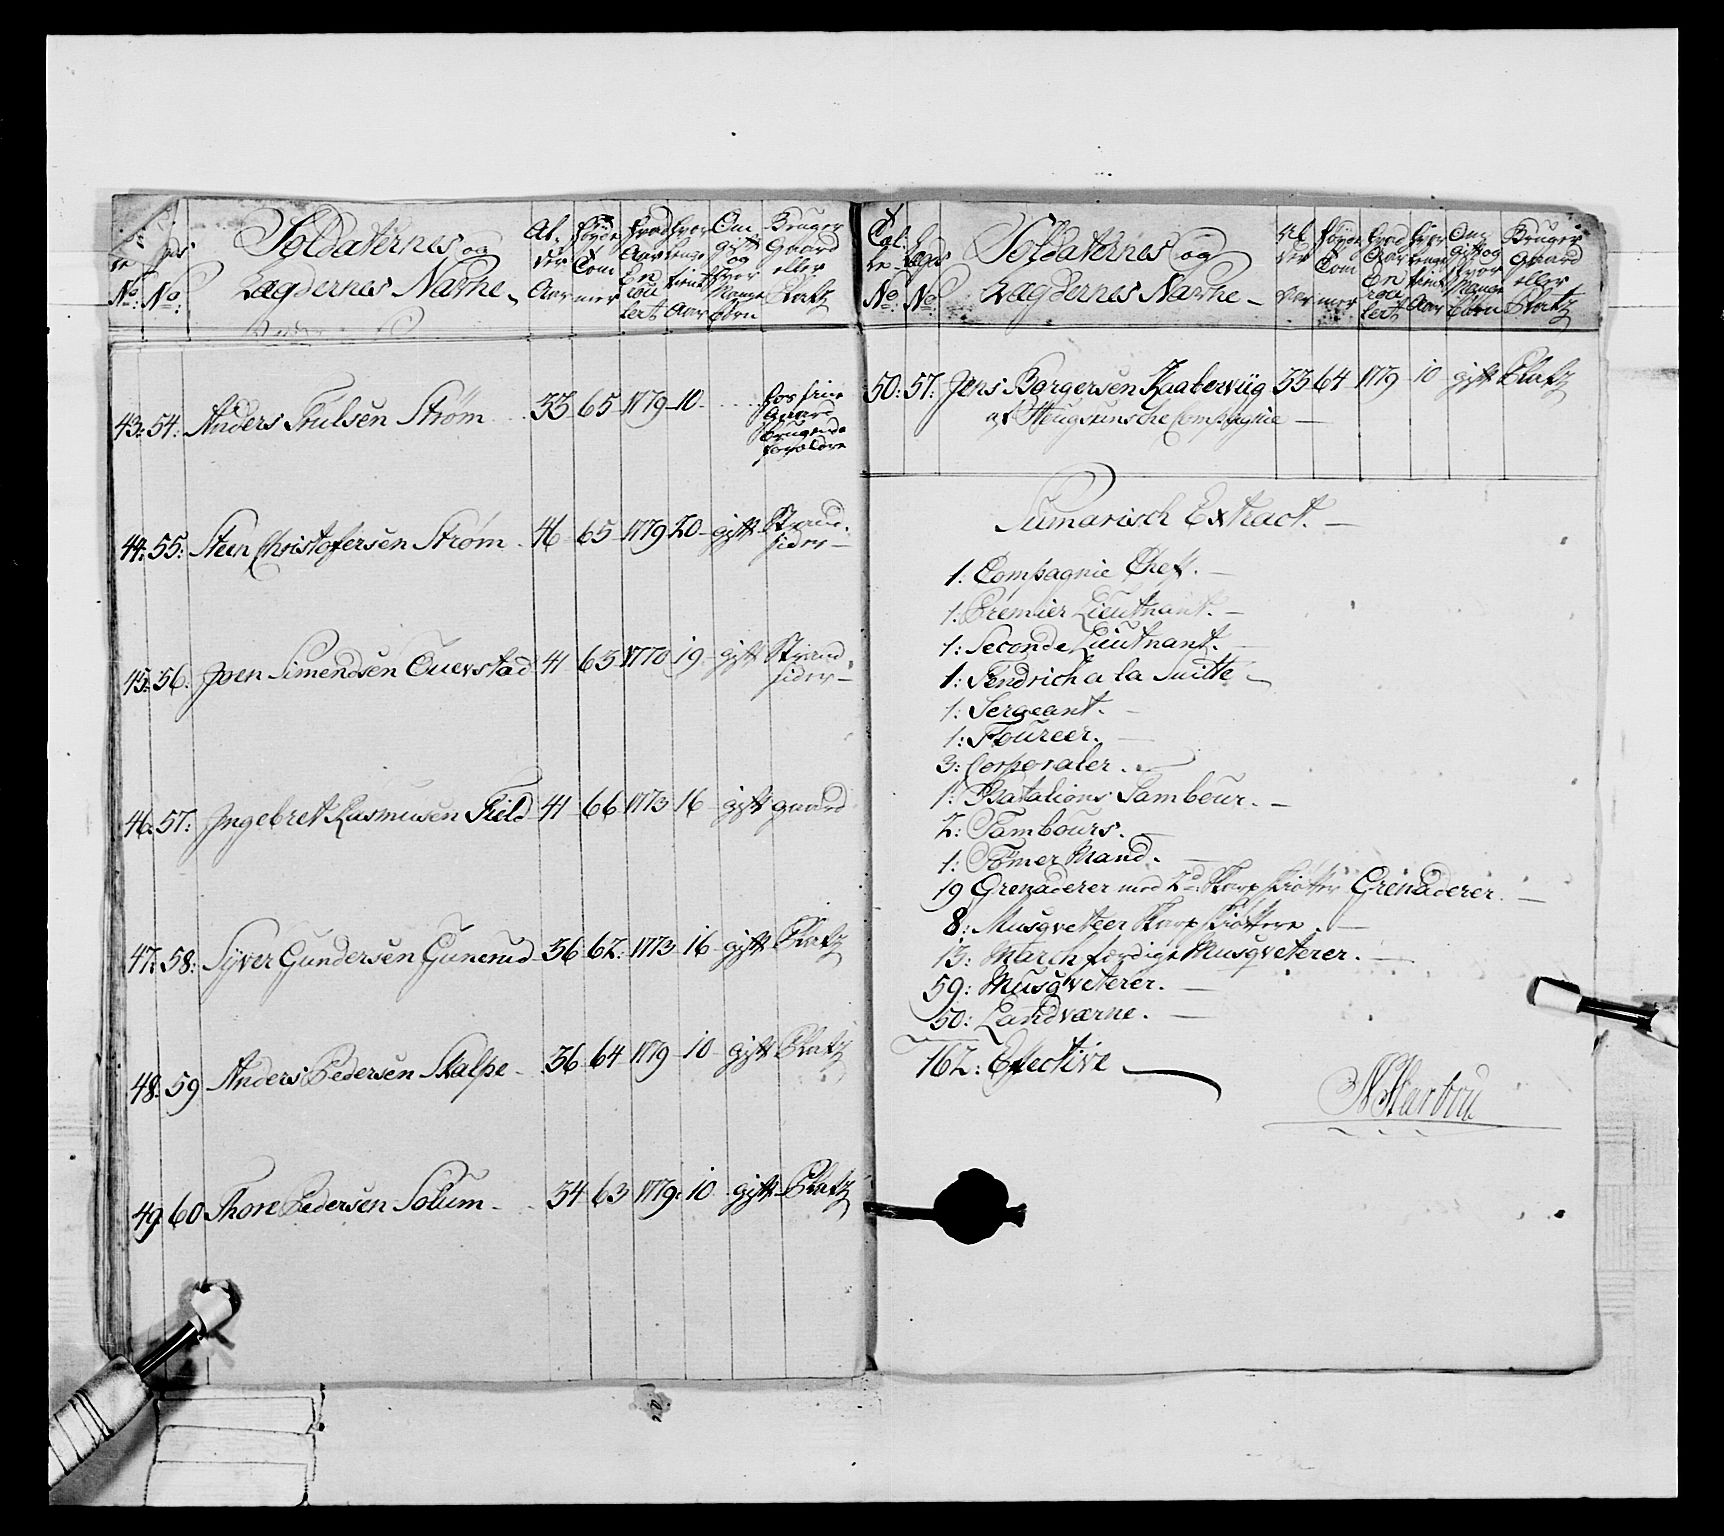 Soldaternes og
Lægdernes Nafne
No: No:
Al-
der
Aar
Høyde
Tom
mer
Hvad
Aar
En
rou
lert
Hvor
lenge
tient
Aar
Om
gift
og
hvor
Mange
børn
Bruger
Gaard
eller
Platz
43: 54: Anders Trulsen Strøm 33 65 1779 10
hos sine
Gaard
brugende
forældre
44: 55: Steen Christofersen Strøm 46 65 1779 20 gift Strand
sider
45: 56. Joen Simensen Ouerstad 41 63 1770 19 gift Strand
sider
46: 57: Ingebret Rasmusen Field 41 66 1773 16 gift gaard
47: 58: Syver Gundersen Gunerud 36 62: 1773 16 gift Platz
48: 59 Anders Pedersen Skalpe 36 64 1779 10 gift Platz
49 60 Thore Pedersen Solum 34 63 1779: 10 gift Platz
No: No:
Soldaternes og
Lægdernes Nafne
Al
der
Aar
Høyde
Tom
mer
Hvad
Aar
En
rou
lert
Hvor
lenge
tient
Aar
Om
gift og
hvor
Mange
børn
Bruger
gaard
eller
Platz
50: 57: Jens Borgersen Kaaterviig 33 64 1779 10 gift Platz
af Compagnie
Sumarisch Extract.
1: Compagnie Chef.
1: Premier Lieutnant.
1: Seconde Lieutnant.
1: Fendrich a la Suitte
1: Sergeant.
1: Foureer.
3: Corporaler.
1: Batalions Tambour.
2: Tambours.
1: Tømer Mand.
19 Grenaderer med 2de Skarp skiøtter Grenaderer.
8: Musqveteer Skarp skiøttere.
13: March færdige Musqveterer.
59: Musqveterer.
50: Landværne.
162: Efective